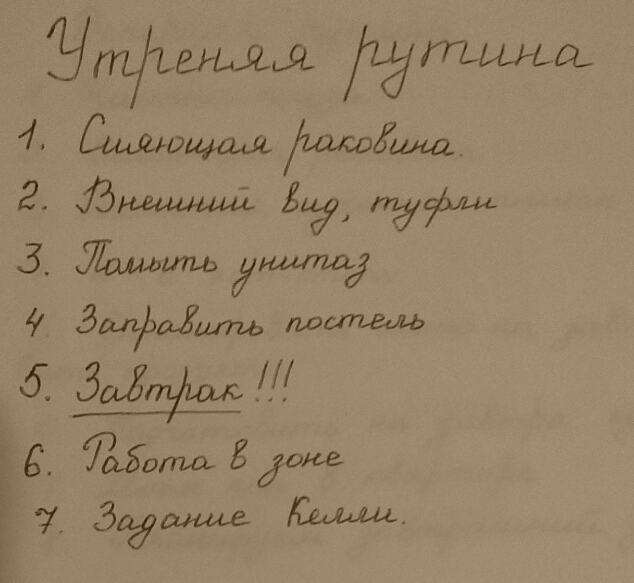 Утреняя рутина
1. Сияющая раковина.
2. Внешний вид, туфли
3. Помыть унитаз
4. Заправить постель
5. Завтрак!!!
6. Работа в зоне
7. Задание Келли.